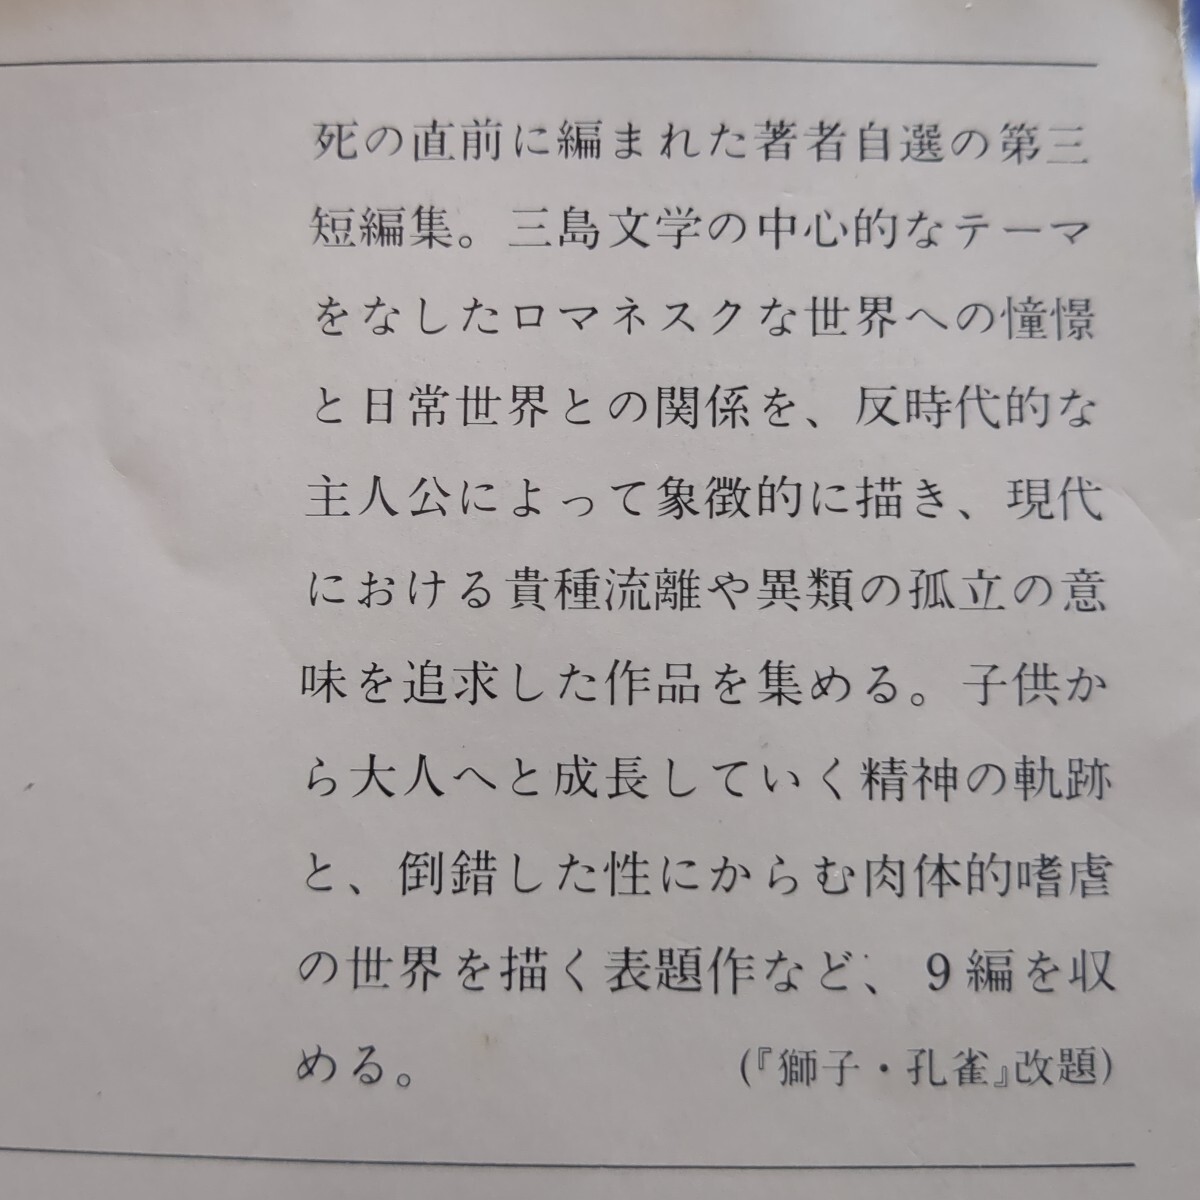 死の直前に編まれた著者自選の第三
短編集。三島文学の中心的なテーマ
をなしたロマネスクな世界への憧憬
と日常世界との関係を、反時代的な
主人公によって象徴的に描き、現代
における貴種流離や異類の孤立の意
味を追求した作品を集める。子供か
ら大人へと成長していく精神の軌跡
と、倒錯した性にからむ肉体的嗜虐
の世界を描く表題作など、9編を収
める。 (『獅子・孔雀』改題)